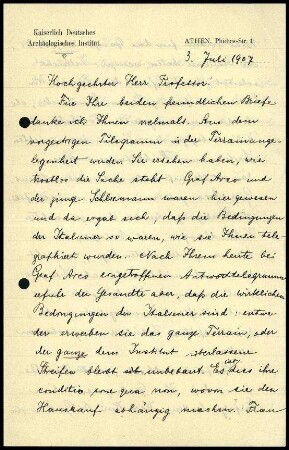 Kaiserlich Deutsches
Archäologisches Institut.
ATHEN, Phidias-Str. 1
3. Juli 1907
Hochgeehrter Herr Professor!
Für Ihre beiden freundlichen Briefe
danke ich Ihnen vielmals. Aus dem
vorgestrigen Telegramm in der Terrainange-
legenheit werden Sie ersehen haben, wie
kostlos die Sache steht Graf Arco und
der junge Schliemann waren hier gewesen
und da ergab sich, daß die Bedingungen
der Italiener so waren, wie sie Ihnen tele-
graphiert wurden. Nach Ihrem heute bei
Graf Arco eingetroffenen Antworttelegramm
erfuhr der Gesandte aber, daß die wirklichen
Bedingungen der Italiener sind: entwe
der erwerben sie das ganze Terrain, oder
der ganze dem Institut überlassene
Streifen bleibt unbebaut. Es ist dies ihre
conditio sine qua non, wovon sie den
Hauskauf abhängig machen. Frau